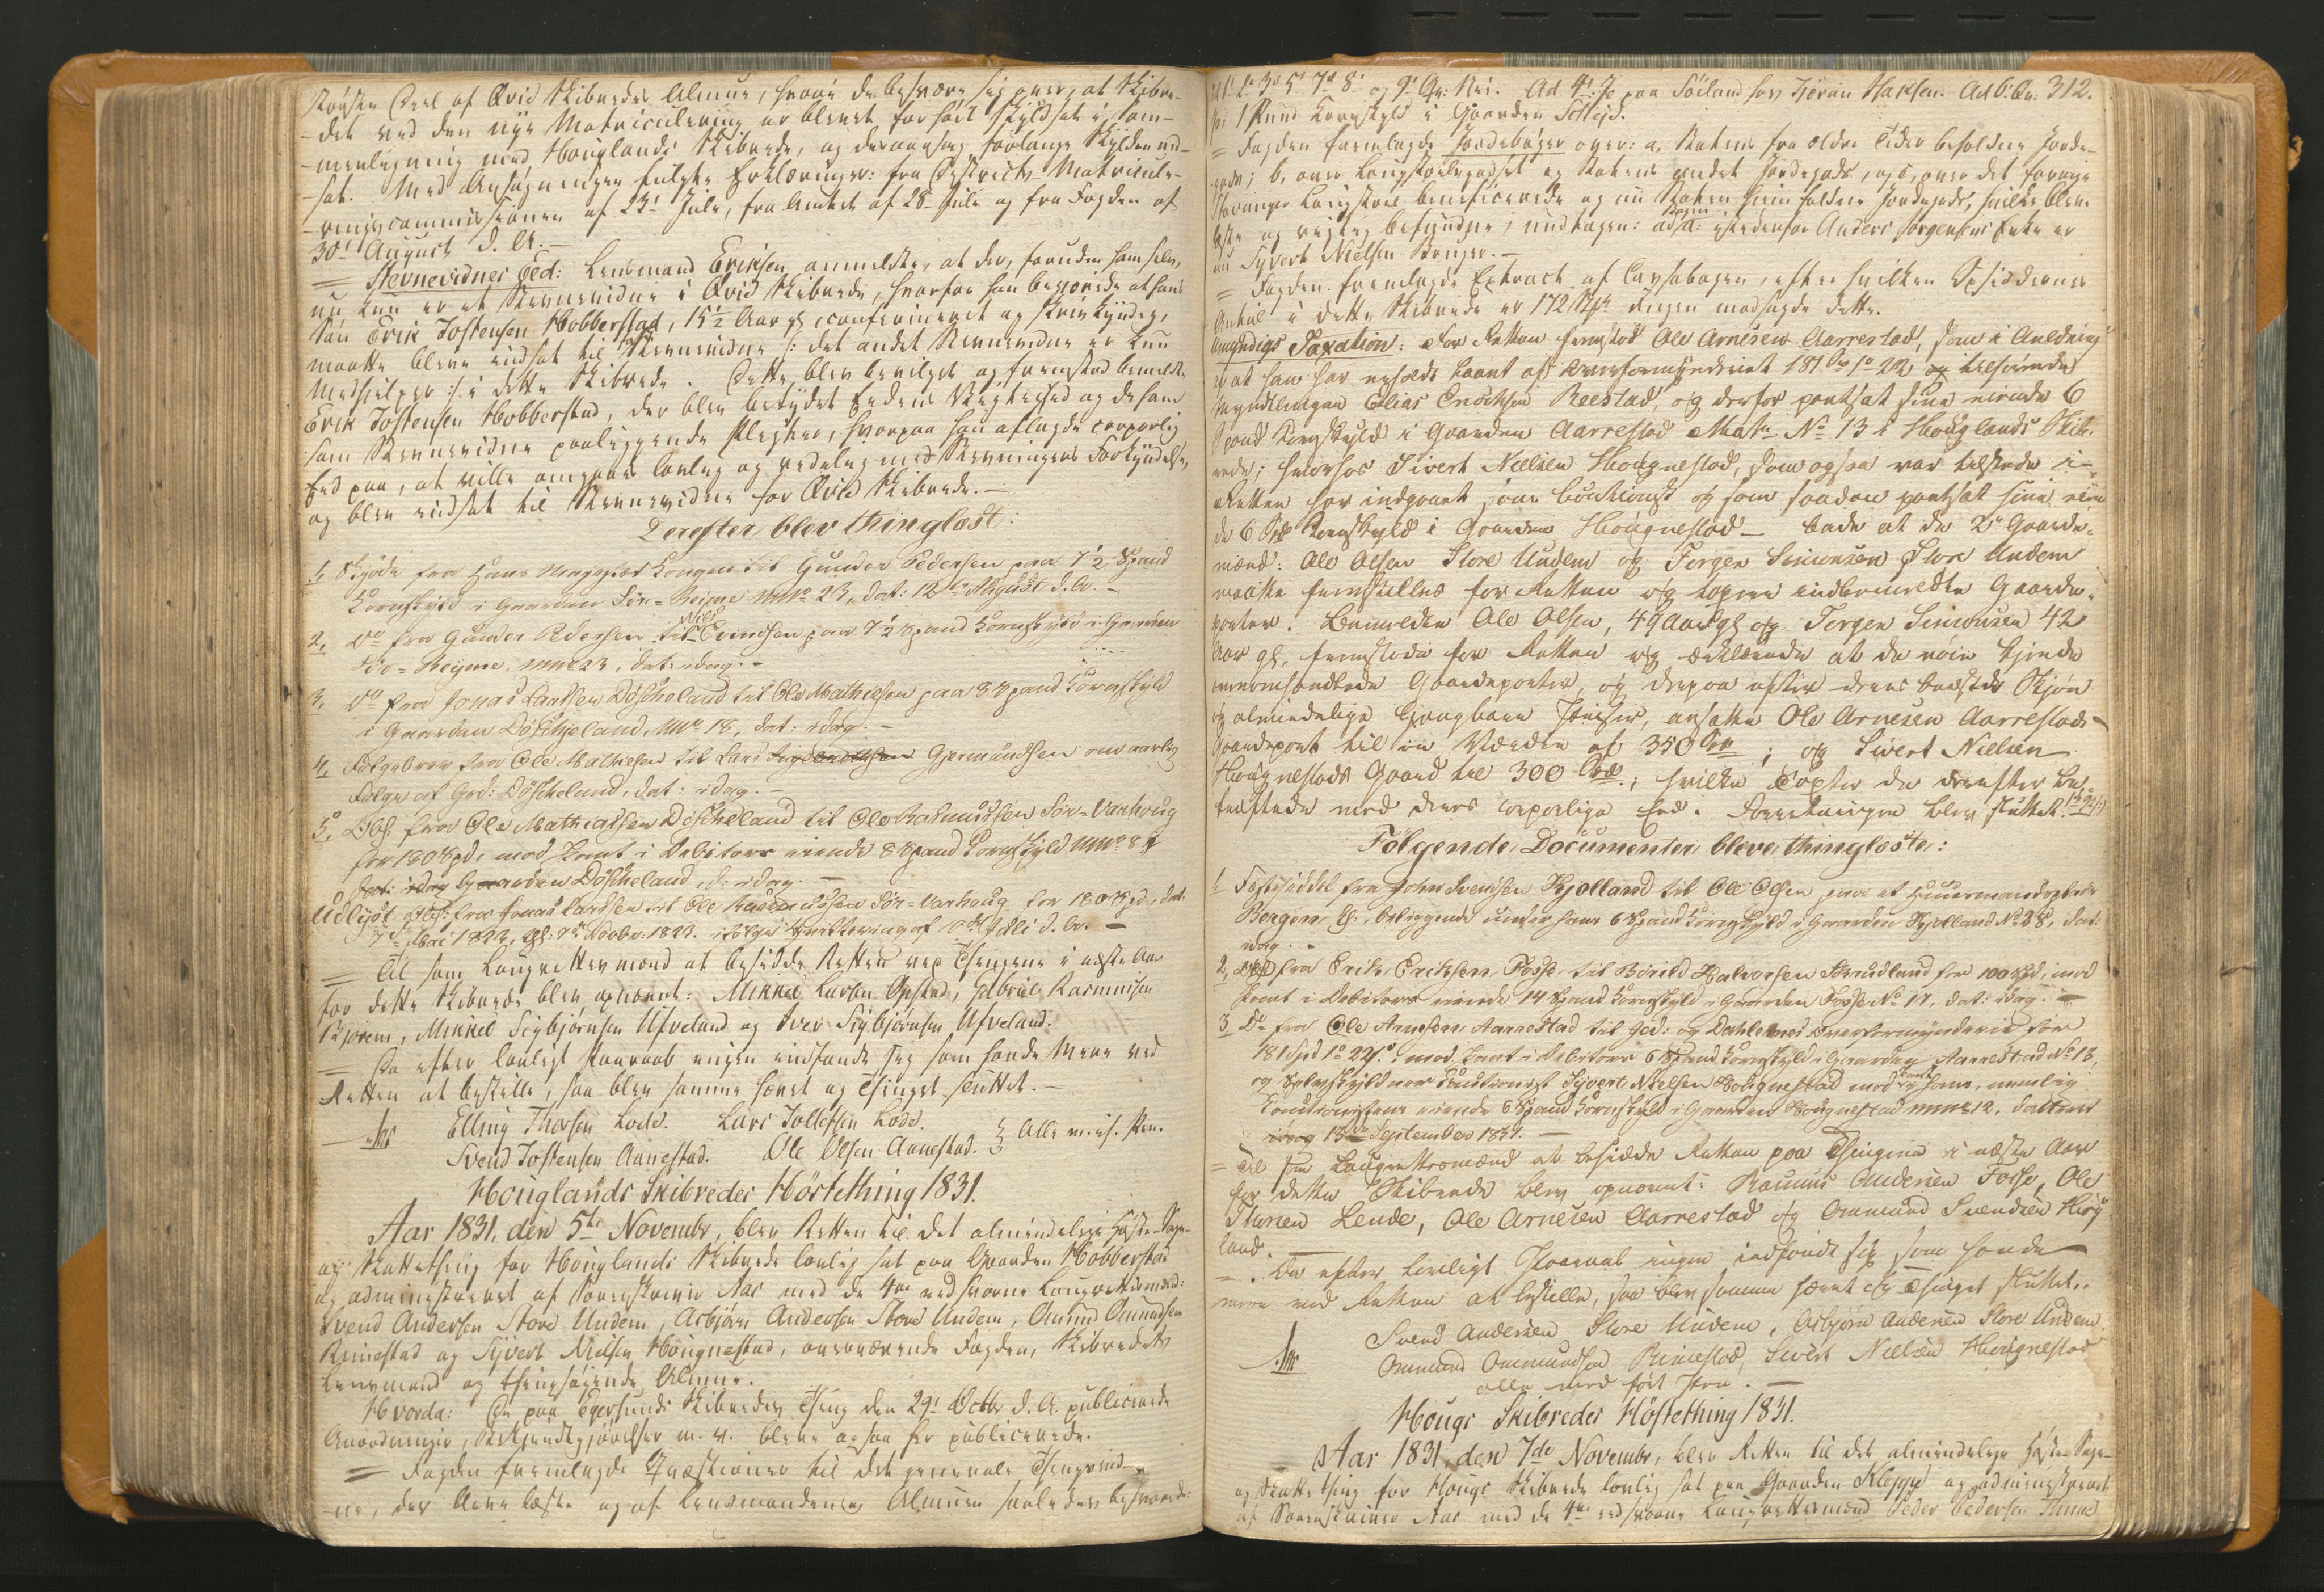 største Deel af Qvid Skibredes Almue, hvori de besvære sig over, at Skibre-
-det ved den nye Matriculering er blevet for høit Skyldsat i Sam-
-menligning med Houglands Skibrede, og derom søg forlange Skylden ned-
-sat. Med Ansøgningen fulgte Erklæringer: fra Districts Matricule-
-ringscommissionen af 23de Juli, fra Amtet af 28 Juli og fra Fogden af
30te August d. A. —
= Stevnevidnes Eed: Lensmand Eriksen anmeldte, at der, foruden ham selv,
nu kun er et Stevnevidne i Qvid Skibrede, hvorfor han begjærede at hans
Søn Erik Jostensen Hobberstad, 15½ Aar gl. confirmeret og skrivkyndig,
maatte blive indsat til Stevnevidne /: det andet Stevnevidne er kun
Medhielper :/ i dette Skibrede. Dette blev bevilget og fremstod bemeldte
Erik Jostensen Hobberstad, der blev betydet Eedens Vigtighed og de ham
som Stevnevidne paaliggende Pligter, hvorpaa han aflagde corporlig
Eed paa, at ville omgaaes lovlig og redelig med Stevningers Forkyndelse,
og blev indsat til Stevnevidne for Qvid Skibrede. —
Derefter blev thinglæst:
1, Skjøde fra Hans Kongen til Gunder Pedersen paa 7½ Spand
Kornskyld i Gaarden Sør-Reime MNo 23, dat: 12te August d. A. —
2, Do fra Gunder Pedersen til Niels Evindsen paa 7½ Spand Kornskyld i Gaarden
Sør-Reime, MNo 23, dat: idag. —
3, Do fra Jonas Larsen Døskeland til Ole Mathiesen paa 8 Spand Kornskyld
i Gaarden Døskjeland, MNo 18, dat: idag. —
4, Følgebrev fra Ole Mathiesen til Lars Gjermundsen om aarlig
Følge af Grd: Døskeland, dat: idag. —
5, Obl. fra Ole Mathiasen Døskeland til Ole Rasmussen Sør-Varhoug
for 180 Spd, mod Pant i Debitors eiende 8 Spand Kornskyld MNo 18
dat: idag Gaarden Døskeland, d: idag. —
Udlyst Obl: fra Jonas Larsen til Ole Rasmussen Sør-Varhoug for 180 Spd, dat:
7de Mai 1823, gl: 7de Novbr. 1823. ifølge Qvittering af 10de Juli d. A. —
= Til som Laugrettesmænd at besidde Retten ved Thingene i næste Aar
for dette Skibrede blev opnævnt: Mikkel Larsen Opstad, Gabriel Rasmusen
Bjorem, Mikkel Sigbjørnsen Ufveland og Iver Sigbjørnsen Ufveland.
= Da efter lovligt Paaraab ingen indfandt sig som havde mere ved
Retten at bestille, saa blev samme hævet og Thinget sluttet. —
Aas Elling Thorsen Lode. Lars Tollefsen Lode.
Svend Jostensen Aanestad. Ole Olsen Aanestad. } Alle m. if. Pen.
Houglands Skibredes Høstething 1831.
Aar 1831, den 5te Novembr, blev Retten til det almindelige Høste-Sage-
og Skattething for Houglands Skibrede lovlig sat paa Gaarden Hobberstad
og administreret af Sorenskriver Aas med de 4re eedsvorne Laugrettesmænd:
Svend Andersen Store Undem, Asbjørn Andersen Store Undem, Omund Omundsen
Rimestad og Syvert Nielsen Hougnestad, overværende Fogden, Skibredets
Lensmand og thingsøgende Almue.
Hvorda: De paa Egersunds Skibredes Thing den 29de Octbr d. A. publicerede
Anordninger, Bekjendtgjørelser m. v. bleve ogsaa her publicerede.
= Fogden fremlagde Qvæstioner til det generale Thingsvid-
-ne, der bleve læste og af Lensmanden og Almuen saaledes besvarede:
1te 2de 3de 5te 7de 8de og 9de Qv: Nei. Ad 4de: Jo paa Søiland hos Tjøran Haksen. Ad 6te Qv: 312.
1 Pund Kornskyld i Gaarden Schejd.
= Fogden fremlagde Jordebøger over: a, Statens fra ældre Tider beholdne Jorde-
gods; b, over Laugstoelsgodset og Statens andet Jordegods, og c, over det forrige
Stavanger Laugstoel beneficerede og nu Staten hjemfaldne Jordegods, hvilke bleve
læste og rigtig befundne; undtagen: ad Bogen a: istedenfor Anders Jørgensens Enke er
nu Syvert Nielsen Bruger. —
= Fogden fremlagde Extract af Cassabogen, efter hvilken Opsiddernes
Antal i dette Skibrede er 172 Stk. Ingen modsagde dette.
Umyndigs Taxation: For Retten fremstod Ole Arnesen Aarrestad, som i Anledning
af at han har erholdt Laant af Overformynderiet 181 Spd 1 22 tilhørende
Myndlingen Elias Enochsen Reestad, og derfor pantsat sine eiende 6
Spand Kornskyld i Gaarden Aarrestad Matr: No 13 i Houglands Skib-
rede; hvorfor Sivert Nielsen Hougnestad, som ogsaa var tilstede i
Retten har indgaaet som Cautionist og som saadan pantsat sine eien-
de 6 Spd Kornskyld i Gaarden Hougnestad — bade at de 2de Gaard-
mænd: Ole Olsen Store Undem og Torger Simonsen Store Undem
maatte fremstilles for Retten og taxere indbemeldte Gaarde-
parter. Bemeldte Ole Olsen, 49 Aar gl. og Torger Simonsen 42
Aar gl. fremstode for Retten og erklærede at de nøie kjende
ovenomhandlede Gaardeparter, og derpaa efter deres bedste Skjøn
og almindelige gangbare Priser, ansatte Ole Arnesen Aarrestads
Gaardepart til en Værdie af 350 Spd; og Sivert Nielsen
Hougnestads Gaard til 300 Spd; hvilke Taxter de derefter be-
kræftede med deres corporlige Eed. Forretningen blev sluttet.
Følgende Documenter bleve thinglæste:
1 Fæsteseddel fra John Svendsen Kjølland til Ole Olsen paa et Huusmandsplads
Bergene, beliggende under hans 6 Spand Kornskyld i Gaarden Kjølland No 28, dat:
idag. —
2, Obl fra Erik Eriksen Fosse til Børild Halvorsen Strudland for 100 Spd, mod
Pant i Debitors eiende 14 Spand Kornskyld i Gaarden Fosse No 17, dat: idag. —
3 Do fra Ole Arnesen Aarrestad til Jed: og Dahlernes Overformynderie for
181 Spd 1 22 s. mod Pant i Debitors 6 Spand Kornskyld i Gaarden Aarrestad No 13,
og Selvskyldner Cautionist Syvert Nielsen Hougnestad mod Pant i hans, nemlig
Cautionistens eiende 6 Spand Kornskyld i Gaarden Hougnestad MNo 12. Datteret
idag 13de September 1831. —
= Til som Laugrettesmænd at besidde Retten paa Thingene i næste Aar
for dette Skibrede blev opnævnt: Rasmus Andersen Fosse, Ole
Thorsen Lende, Ole Arnesen Aarrestad og Ommund Svendsen Høy-
land. —
= Da efter lovligt Paaraab ingen indfandt sig som havde
mere ved Retten at bestille, saa blev samme hævet og Thinget sluttet. —
Aas Svend Andersen Store Undem, Asbjørn Andersen Store Undem
Ommund Ommundsen Rimestad, Sivert Nielsen Hougnestad
alle med ført Pen. —
Hougs Skibredes Høstething 1831.
Aar 1831, den 7de Novembr, blev Retten til det almindelige Høste-Sage-
og Skattething for Hougs Skibrede lovlig sat paa Gaarden Kleppe og administreret
af Sorenskriver Aas med de 4re eedsvorne Laugrettesmænd Peder Pedersen Thune